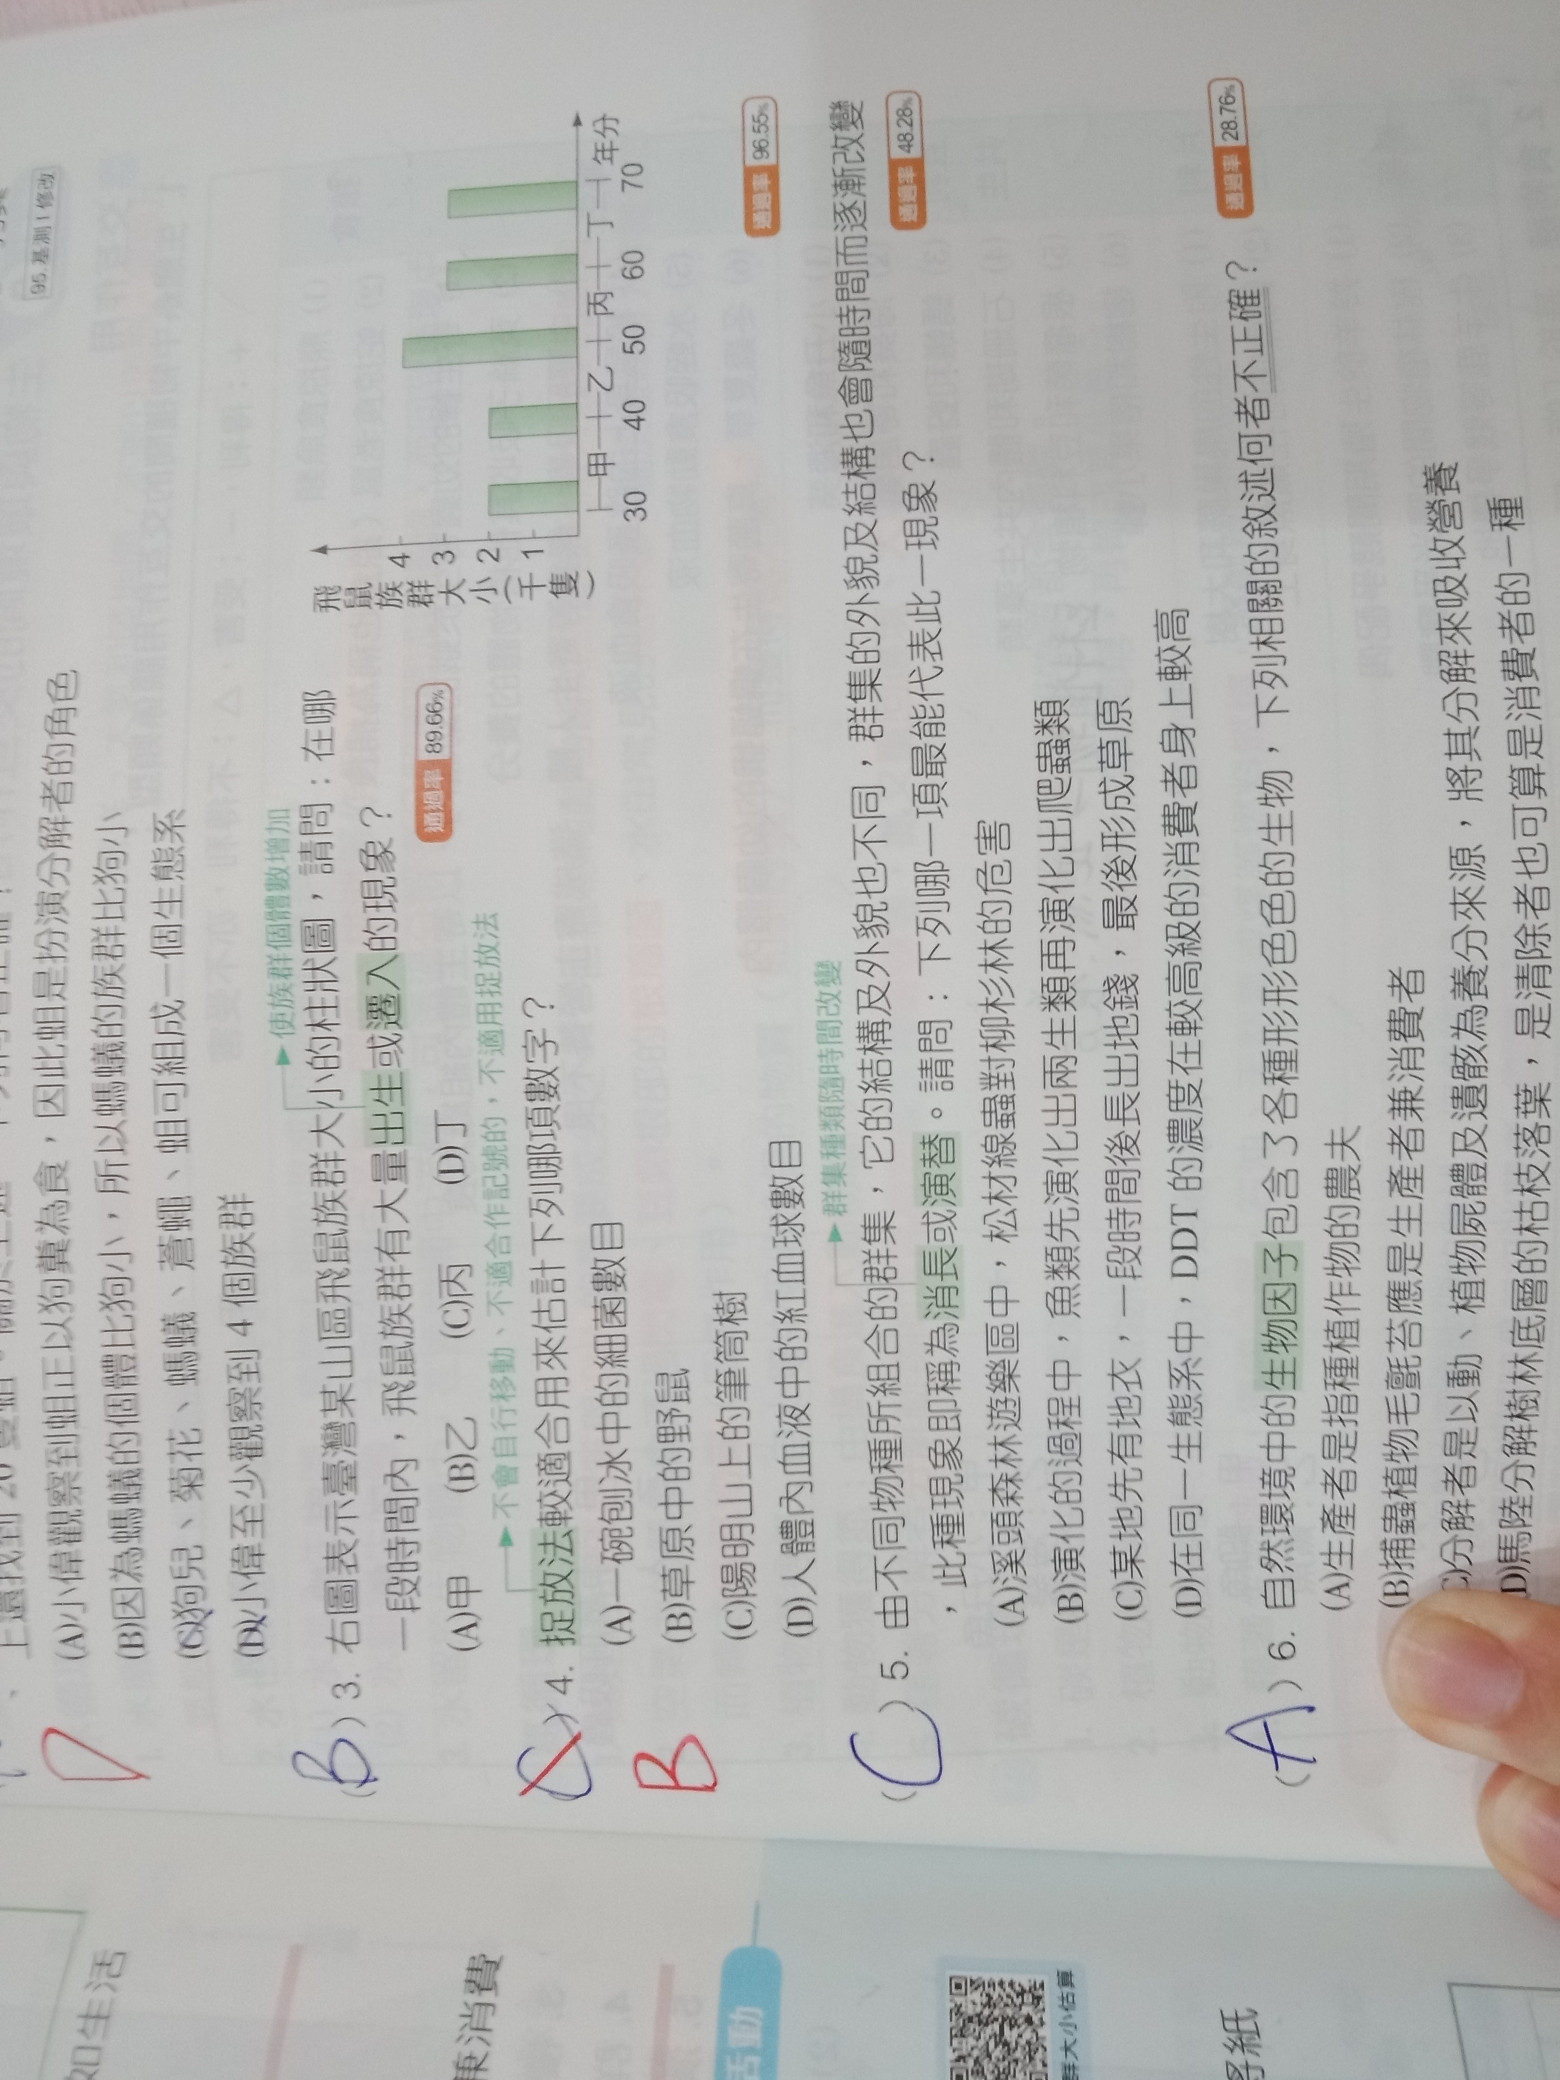 95.基測 I 修改
(A)小偉觀察到蛆正以狗糞為食，因此蛆是扮演分解者的角色
(B)因為螞蟻的個體比狗小，所以螞蟻的族群比狗小
(C)狗兒、菊花、螞蟻、蒼蠅、蛆可組成一個生態系
(D)小偉至少觀察到 4 個族群
D
使族群個體數增加
(B) 3. 右圖表示臺灣某山區飛鼠族群大小的柱狀圖，請問：在哪
一段時間內，飛鼠族群有大量出生或遷入的現象？
通過率 89.66%
(A)甲 (B)乙 (C)丙 (D)丁
飛鼠族群大小(千隻)
4
3
2
1
甲 乙 丙 丁 年分
30 40 50 60 70
不會自行移動、不適合作記號的，不適用捉放法
(C) 4. 捉放法較適合用來估計下列哪項數字？
B
(A)一碗刨冰中的細菌數目
(B)草原中的野鼠
(C)陽明山上的筆筒樹
(D)人體內血液中的紅血球數目
通過率 96.55%
群集種類隨時間改變
(C) 5. 由不同物種所組合的群集，它的結構及外貌也不同，群集的外貌及結構也會隨時間而逐漸改變
，此種現象即稱為消長或演替。請問：下列哪一項最能代表此一現象？
通過率 48.28%
(A)溪頭森林遊樂區中，松材線蟲對柳杉林的危害
(B)演化的過程中，魚類先演化出兩生類再演化出爬蟲類
(C)某地先有地衣，一段時間後長出地錢，最後形成草原
(D)在同一生態系中，DDT 的濃度在較高級的消費者身上較高
(A) 6. 自然環境中的生物因子包含了各種形形色色的生物，下列相關的敘述何者不正確？
通過率 28.76%
(A)生產者是指種植作物的農夫
(B)捕蟲植物毛氈苔應是生產者兼消費者
C)分解者是以動、植物屍體及遺骸為養分來源，將其分解來吸收營養
D)馬陸分解樹林底層的枯枝落葉，是清除者也可算是消費者的一種
如生活
兼消費
活動
群大小估算
將紙